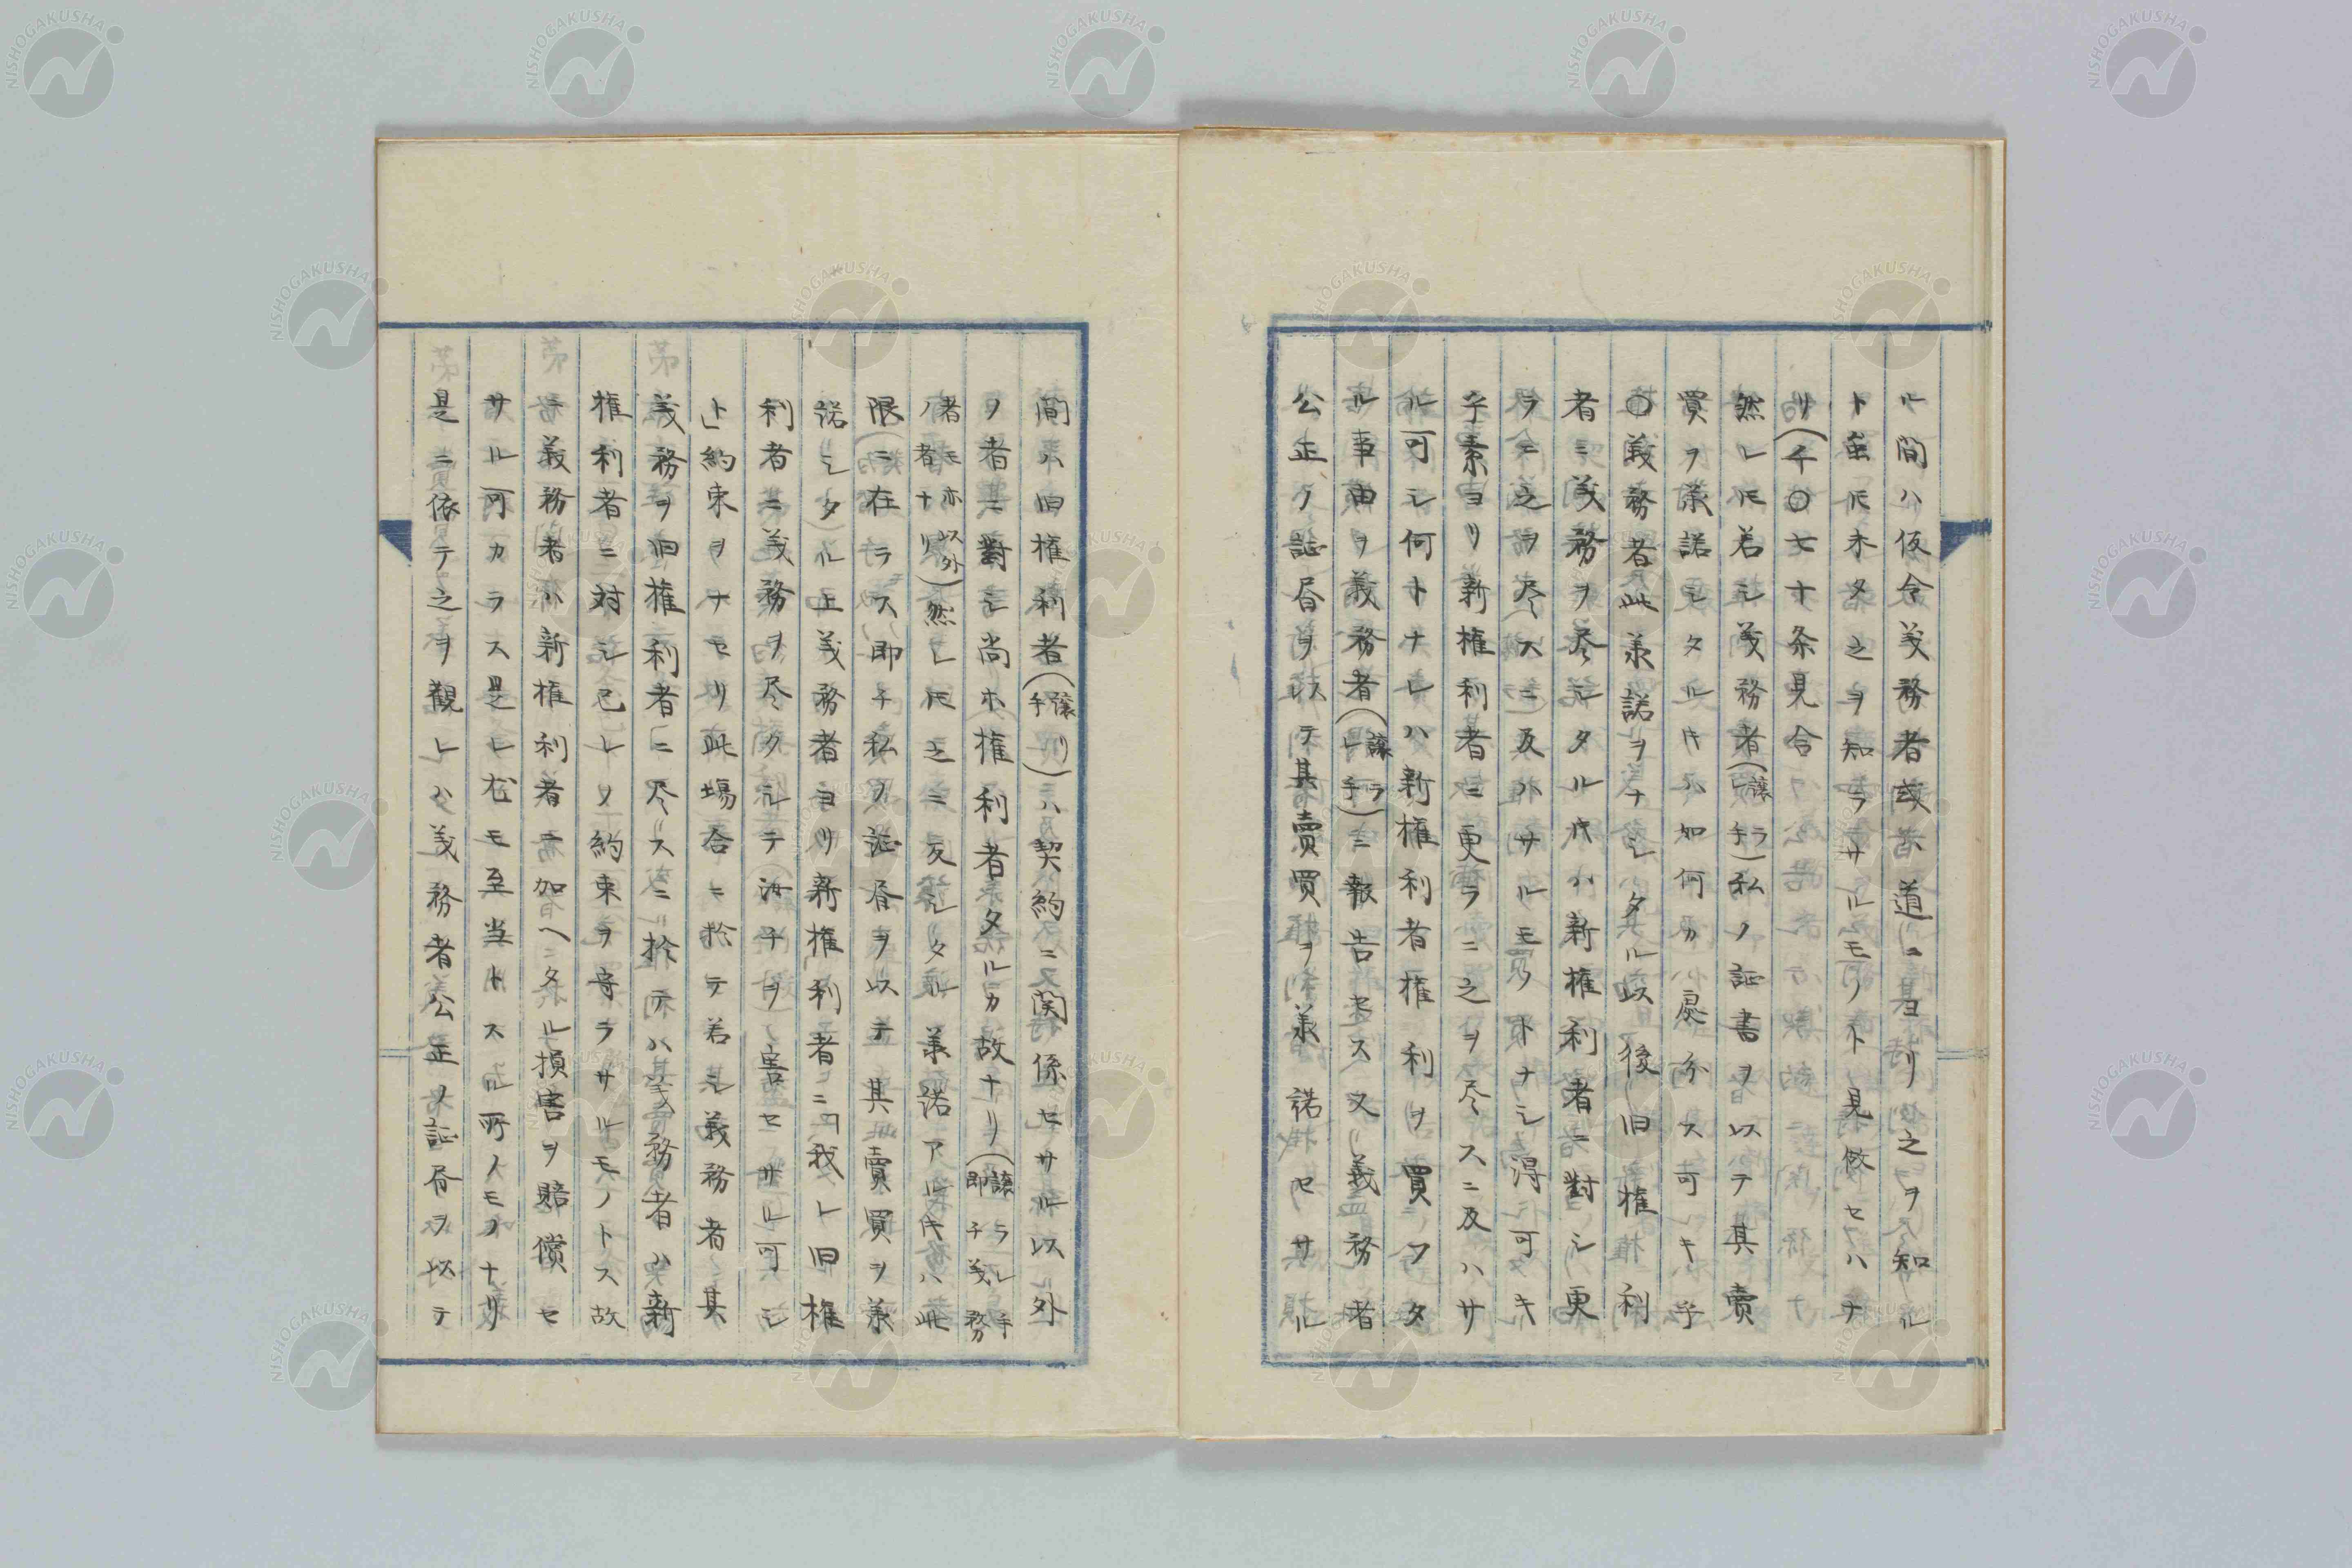 ル間ハ仮令義務者或ハ道ニヨリ之ヲ知ル
ト虽𪜈未タ之ヲ知ラサルモノト見做セハナ
リ(千〇七十条見合
然レ𪜈若シ義務者(譲ラレ手)私ノ証書ヲ以テ其賣
買ヲ羕諾シタルキハ如何カ處分ス可キ乎
〇義務者此羕諾ヲナシタル以後旧権利
者ニ義務ヲ尽シタルキハ新権利者ニ對シ更
ラニ之ヲ尽スニ及ハサルモノトナシ得可キ
乎素ヨリ新権利者ニ更ラニ之ヲ尽スニ及ハサ
ル可シ何トナレハ新権利者権利ヲ買フタ
ル事由ヲ義務者(譲ラレ手)ニ報告セス又義務者
公正ノ証昏ヲ以テ其賣買ヲ羕諾セサル
間ハ旧権利者(譲リ手)ハ契約ニ関係セサル以外
ノ者ニ對シ尚ホ権利者タルカ故ナリ(譲ラレ手即チ義務
者モ亦以外ノ者ナリ)然レ𪜈之ニ反シタル羕諾アルキハ此
限ニ在ラス即チ私ノ証昏ヲ以テ其賣買ヲ羕
諾シタル上義務者ヨリ新権利者ニ「我レ旧権
利者ニ義務ヲ尽クシテ汝チヲ害セサル可シ
ト」約束ヲナセリ此場合ニ於テ若シ義務者其
義務ヲ旧権利者ニ尽スニ於テハ義務者ハ新
権利者ニ対シ已レノ約束ヲ守ラサルモノトス故
ニ義務者ハ新権利者ニ加ヘタル損害ヲ賠償セ
サル可カラス是レ尤モ至当トスル所ノモノナリ
是ニ依テ之ヲ観レハ義務者公正ノ証昏ヲ以テ
NISHOGAKUSHA